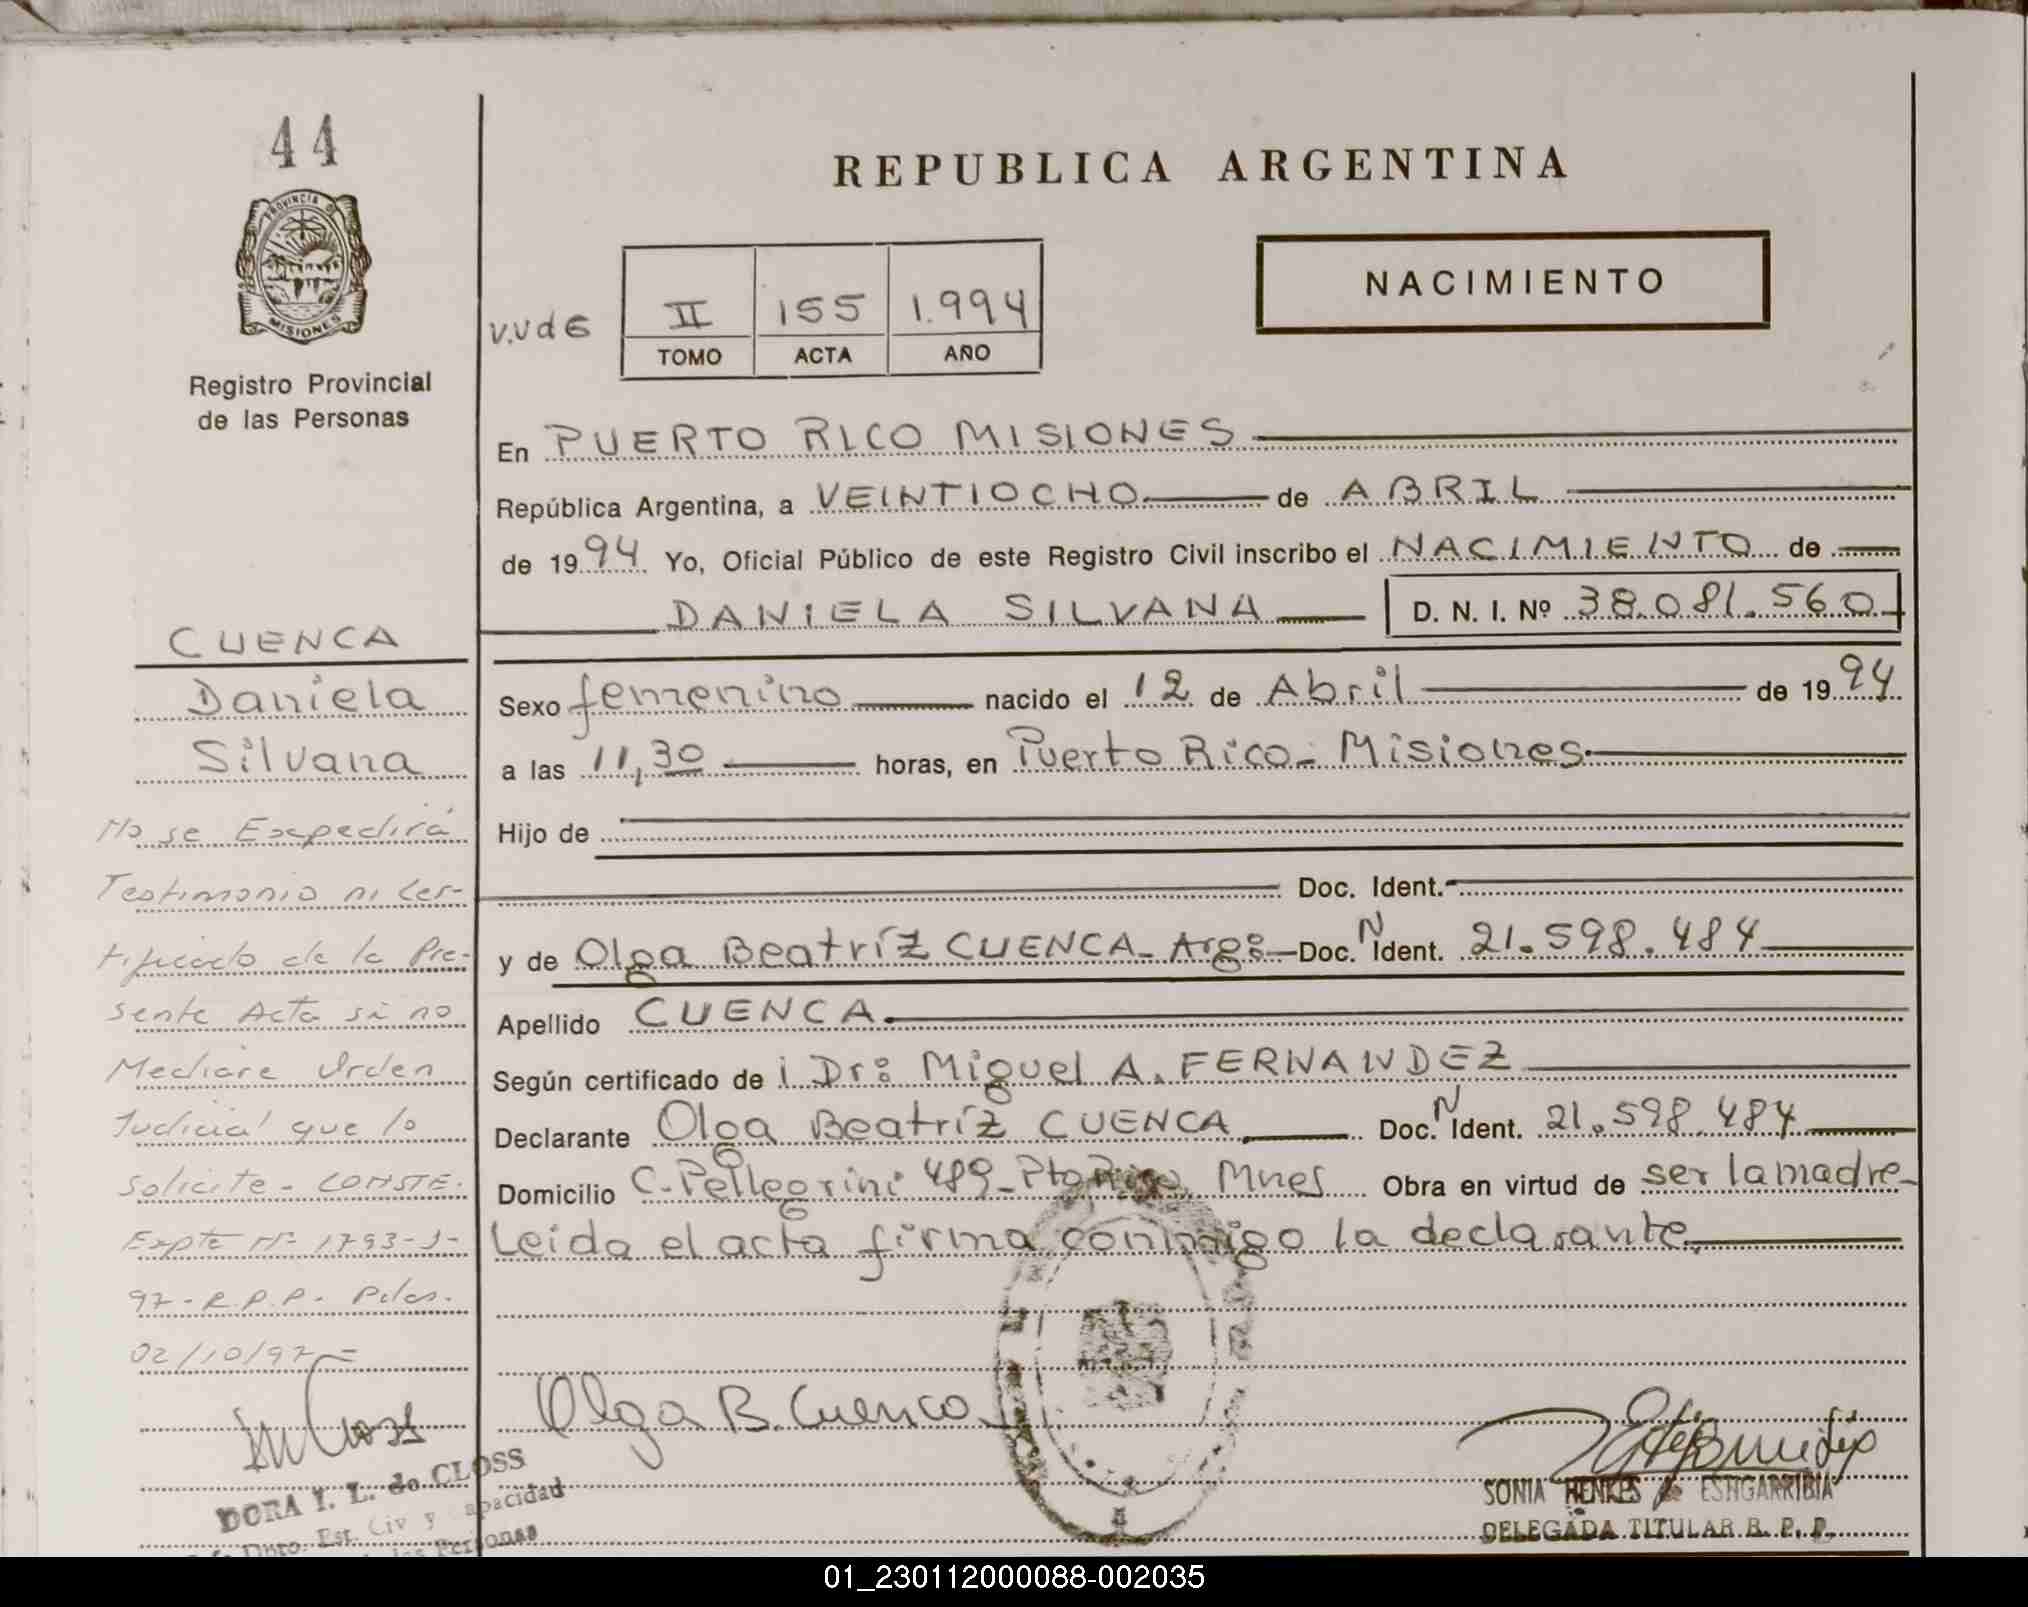 44
PROVINCIA D
MISIONES
Registro Provincial
de las Personas
REPUBLICA ARGENTINA
NACIMIENTO
V.V d 6
II 155 1.994
TOMO ACTA AÑO
En PUERTO RICO MISIONES
República Argentina, a VEINTIOCHO de ABRIL
de 1994 Yo, Oficial Público de este Registro Civil inscribo el NACIMIENTO de
DANIELA SILVANA D. N. I. Nº 38.081.560
Sexo femenino nacido el 12 de Abril de 1994
a las 11,30 horas, en Puerto Rico - Misiones
Hijo de
Doc. Ident.
y de Olga Beatríz CUENCA - Arg: Doc. N Ident. 21.598.484
Apellido CUENCA.
Según certificado de i Dr: Miguel A. FERNANDEZ
Declarante Olga Beatríz CUENCA Doc. N Ident. 21.598.484
Domicilio C. Pellegrini 489 - Pto Rico Mnes Obra en virtud de ser la madre -
Leida el acta firma conmigo la declarante.
Olga B. Cuenca
SONIA HENKES de ESTIGARRIBIA
DELEGADA TITULAR R. P. P.
CUENCA
Daniela
Silvana
No se Expedirá
Testimonio ni Cer-
tificado de la Pre-
sente Acta si no
Mediare Orden
Judicial que lo
Solicite - CONSTE.
Expte Nº 1793-J-
97 - R.P.P. - Pdas.
02/10/97 -
DORA I. L. de CLOSS
Dpto. Est. Civ y Capacidad
las Personas
01_230112000088-002035